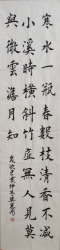 寒水一瓶春數枝清香不減
小溪時橫斜竹底無人見莫
與微雲澹月知
歲次